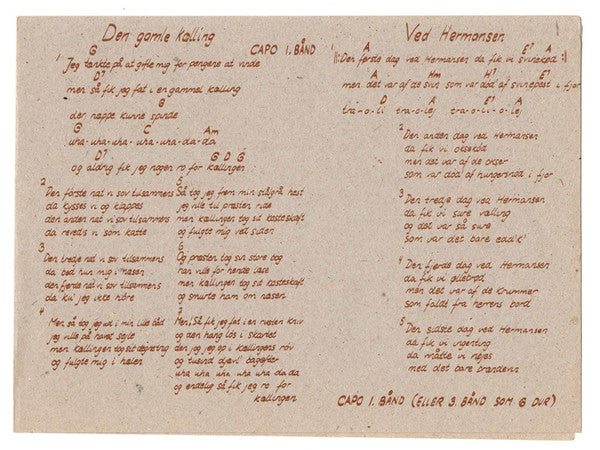 Den gamle kælling
G
CAPO 1. BÅND
1 Jeg tænkte på at gifte mig for pengene at vinde
D7
men så fik jeg fat i en gammel kælling
G
der næppe kunne spinde
G C Am
uha-uha-uha-uha-uha-da-da
D7 G D G
og aldrig fik jeg nogen ro for kællingen
2
Den første nat vi sov tilsammens
da kysses vi og klappes
den anden nat vi sov tilsammens
da reveds vi som katte
3
Den tredie nat vi sov tilsammens
da bed hun mig i næsen
den fjerde nat vi sov tilsammens
da ku' jeg ikke høre
4
Men så tog jeg ud i min lille båd
jeg ville på havet sejle
men kællingen tog sit degnetrug
og fulgte mig i hælen
5
Så tog jeg frem min stålgrå hest
jeg ville til præsten ride
men kællingen tog sd kosteskaft
og fulgte mig ved siden
6
Og præsten tog sin store bog
han ville for hende læse
men kællingen tog sd kosteskaft
og smurte ham om næsen
7
Men! Så fik jeg fat i en rusten kniv
og den hang løs i skaftet
den jog jeg op i kællingens røv
og tusind djævl' bagefter
uha uha uha uha uha da da
og endelig så fik jeg ro for
kællingen
Ved Hermansen
A E7 A
1 ||: Den første dag ved Hermansen da fik vi svinekød :||
A Hm H7 E7
men det var af de svin som var død af svinepest i fjor
A D A E7 A
tra-o-li tra-o-lej tra-o-li-o-lej
2
Den anden dag ved Hermansen
da fik vi oksekød
men det var af de okser
som var død af hungersnød i fjor
3
Den tredje dag ved Hermansen
da fik vi sure vælling
og det var så sure
som var det bare eddik'
4
Den fjerde dag ved Hermansen
da fik vi øllebrød
men det var af de krummer
som faldt fra herrens bord
5
Den sidste dag ved Hermansen
da fik vi ingenting
da måtte vi nøjes
med det bare brændevin
CAPO 1. BÅND (ELLER 3. BÅND SOM G DUR)